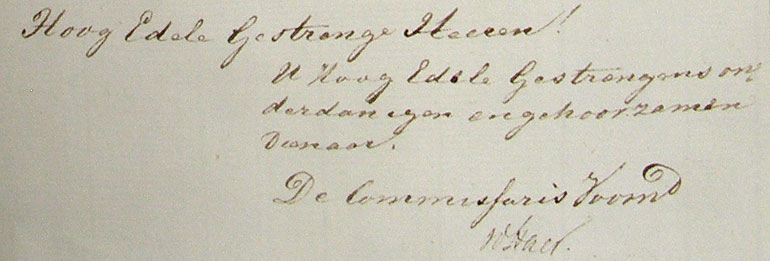 Hoog Edele Gestrenge Heeren!
U Hoog Edele Gestrengens on„
derdanigen en gehoorzamen
Dienaar.
De Commissaris Voornd